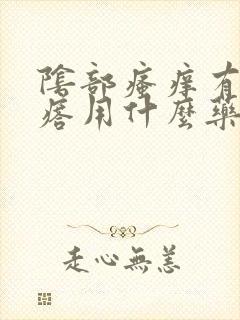 陰部瘙痒有
痞用什麼藥
走心無恙